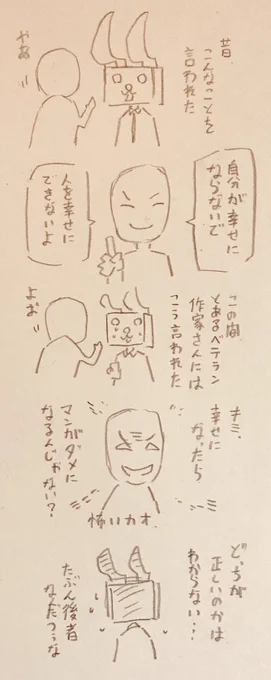 昔
こんなことを
言われた
やあ
自分が幸せに
ならないで
人を幸せに
できないよ
この間
とあるベテラン
作家さんには
こう言われた
よお
キミ、
幸せに
なったら
マンガダメに
なるんじゃない？
怖いカオ
どっちが
正しいのかは
わからない…
たぶん後者
なんだろうな